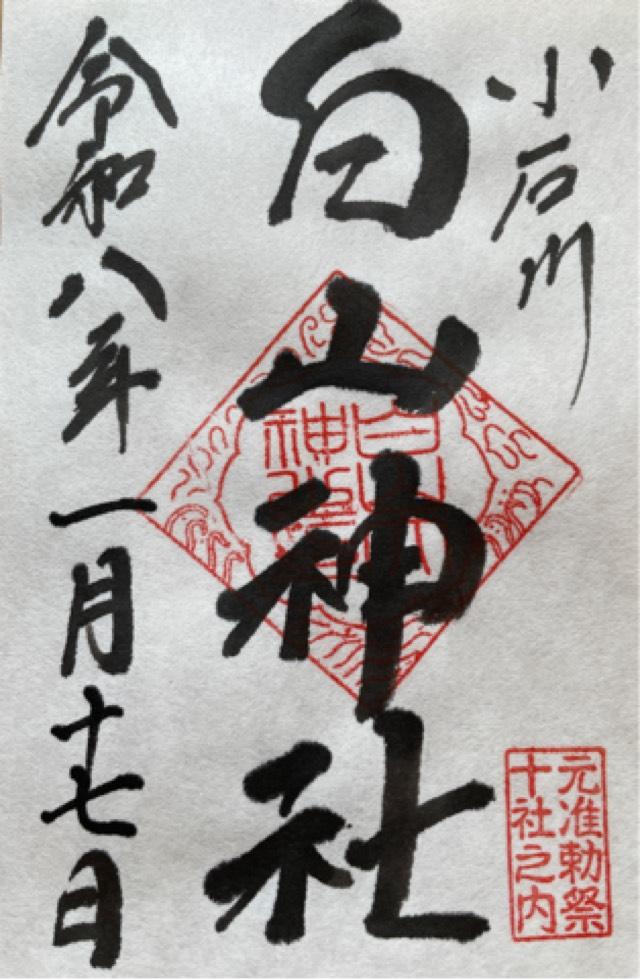 小石川
白山神社
令和八年一月十七日
元准勅祭
十社之内